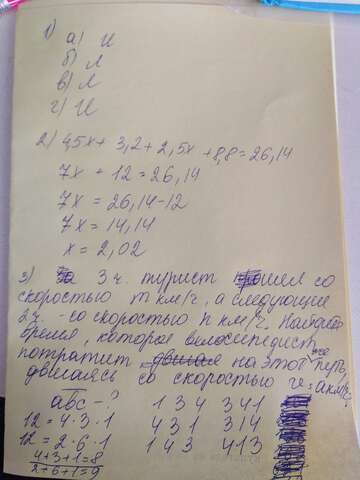 1) а) И
б) Л
в) Л
г) И
2) 4,5x + 3,2 + 2,5x + 8,8 = 26,14
7x + 12 = 26,14
7x = 26,14 - 12
7x = 14,14
x = 2,02
3) За 3 ч. турист прошел со
скоростью m км/ч, а следующие
2 ч. - со скоростью n км/ч. Найдите
время, которое велосипедист
потратит на этот же путь,
двигаясь со скоростью v = a км/ч.
abc - ? 134 341
12 = 4·3·1 431 314
12 = 2·6·1 143 413
4+3+1=8
2+6+1=9